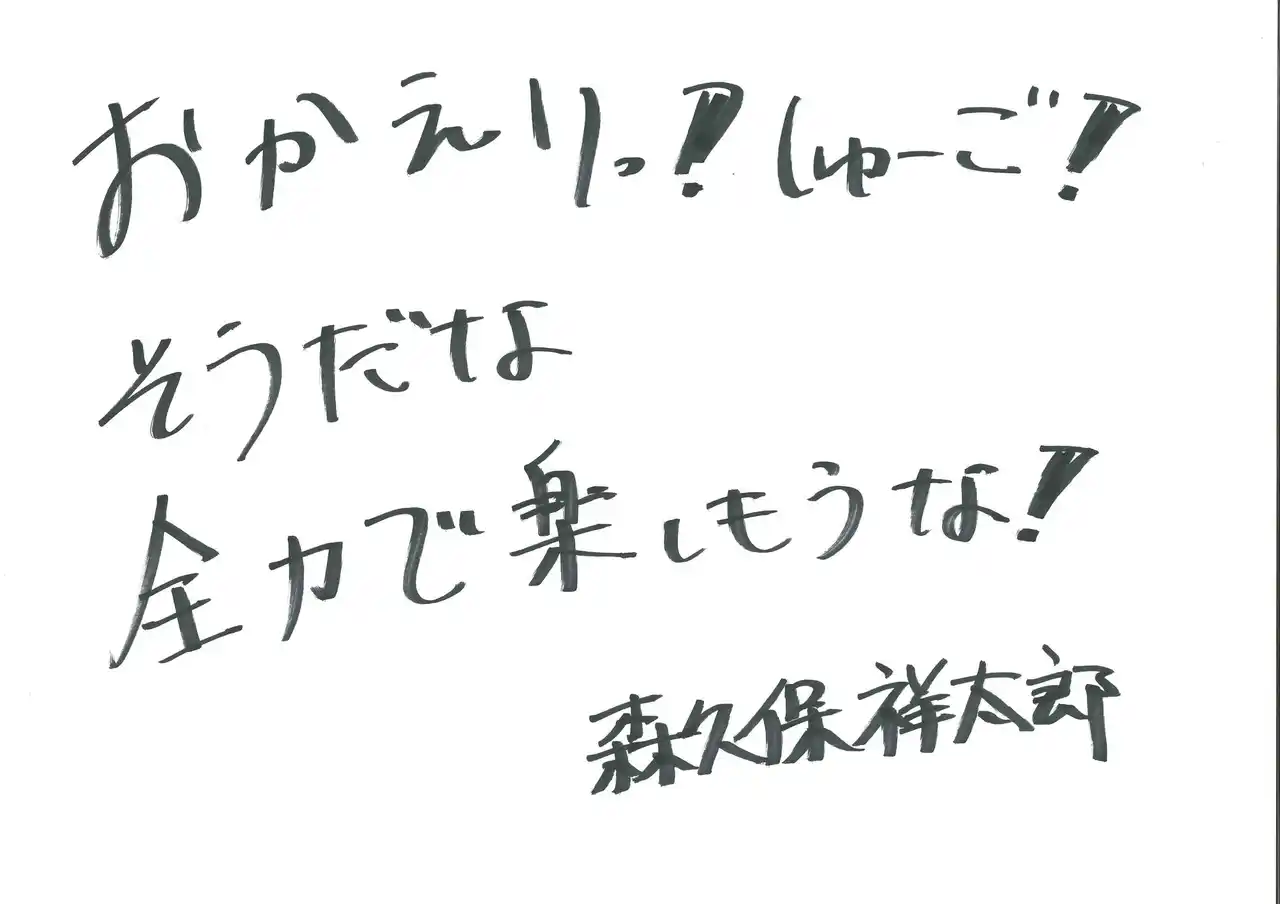 おかえりっ!しゅーご!
そうだな
全力で楽しもうな!
森久保祥太郎